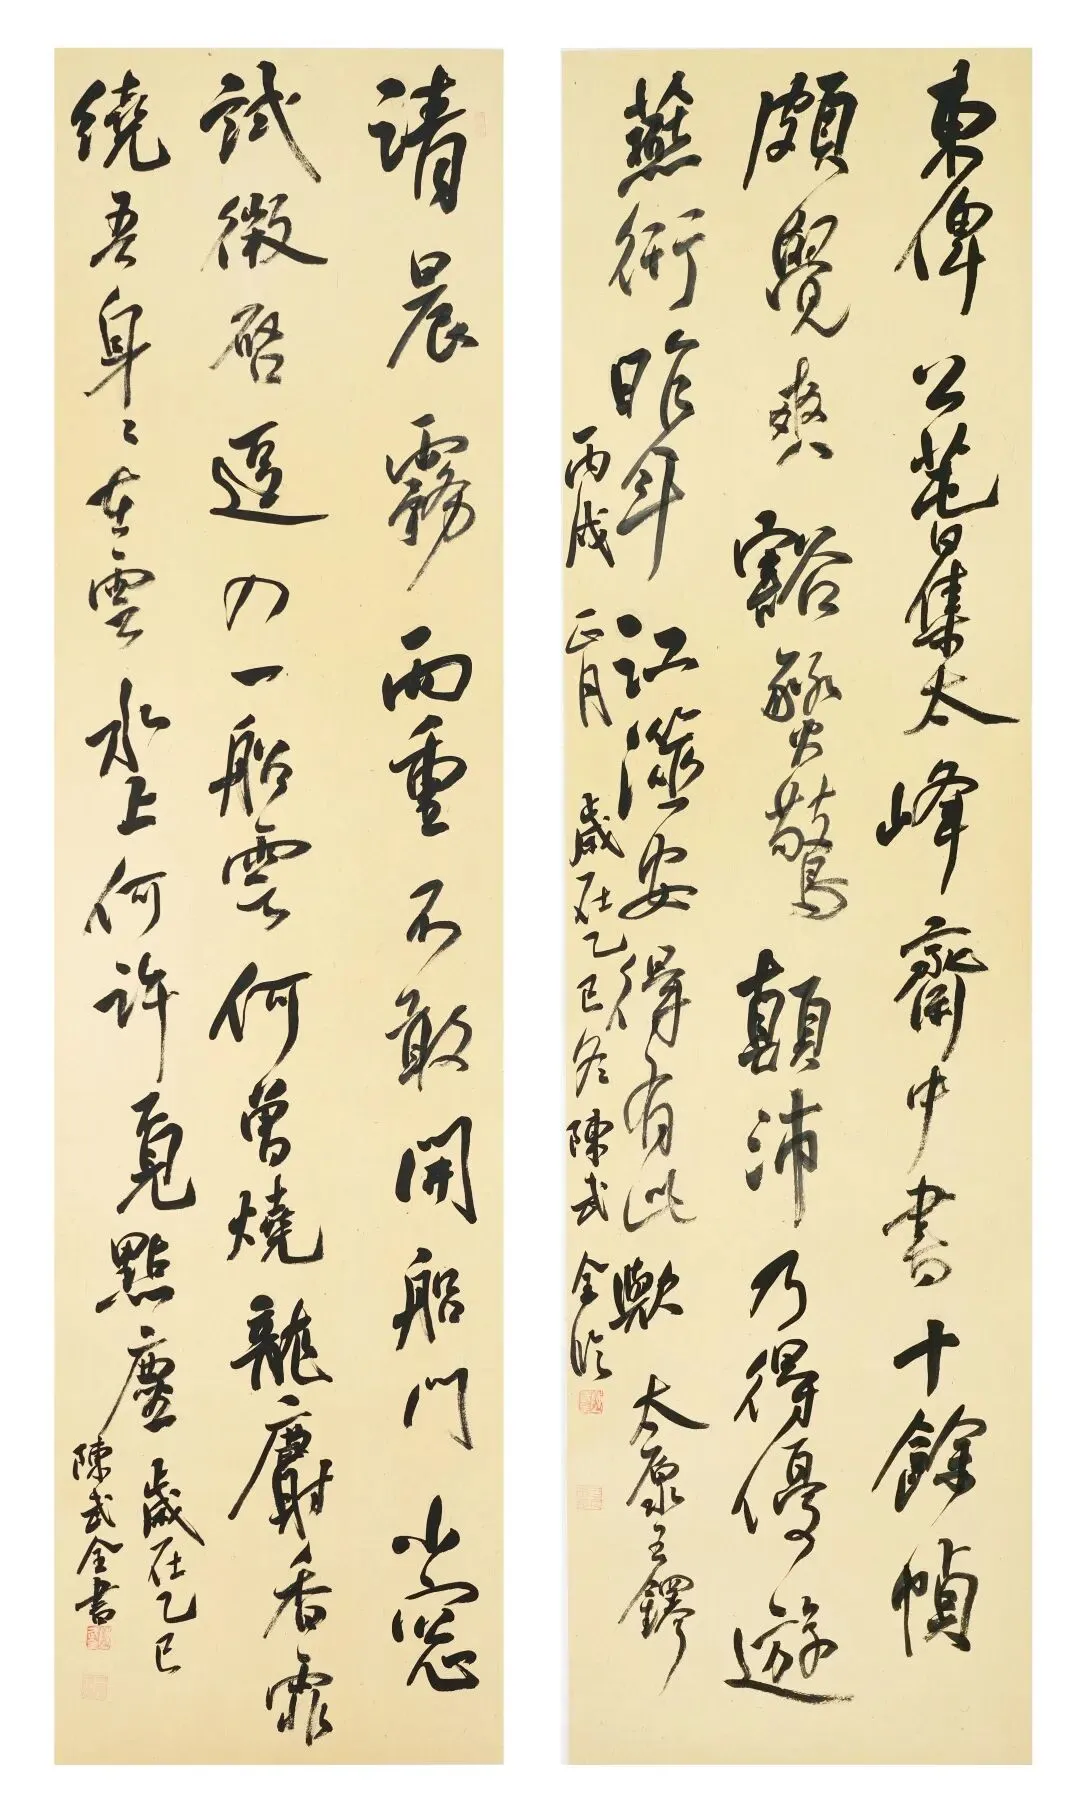 東俾公集太峰齋中書十餘幀
頗覺爽豁驚顛沛乃得優遊
燕衎昨年江澨安得有此歟太原王鐸
丙戌正月歲在乙巳冬陳武全臨
清晨霧雨重不敢開船門小窓
試微啓逗入一船雲何曾燒龍麝香霏
繞吾身々在雲水上何許覓點塵歲在乙巳
陳武全書